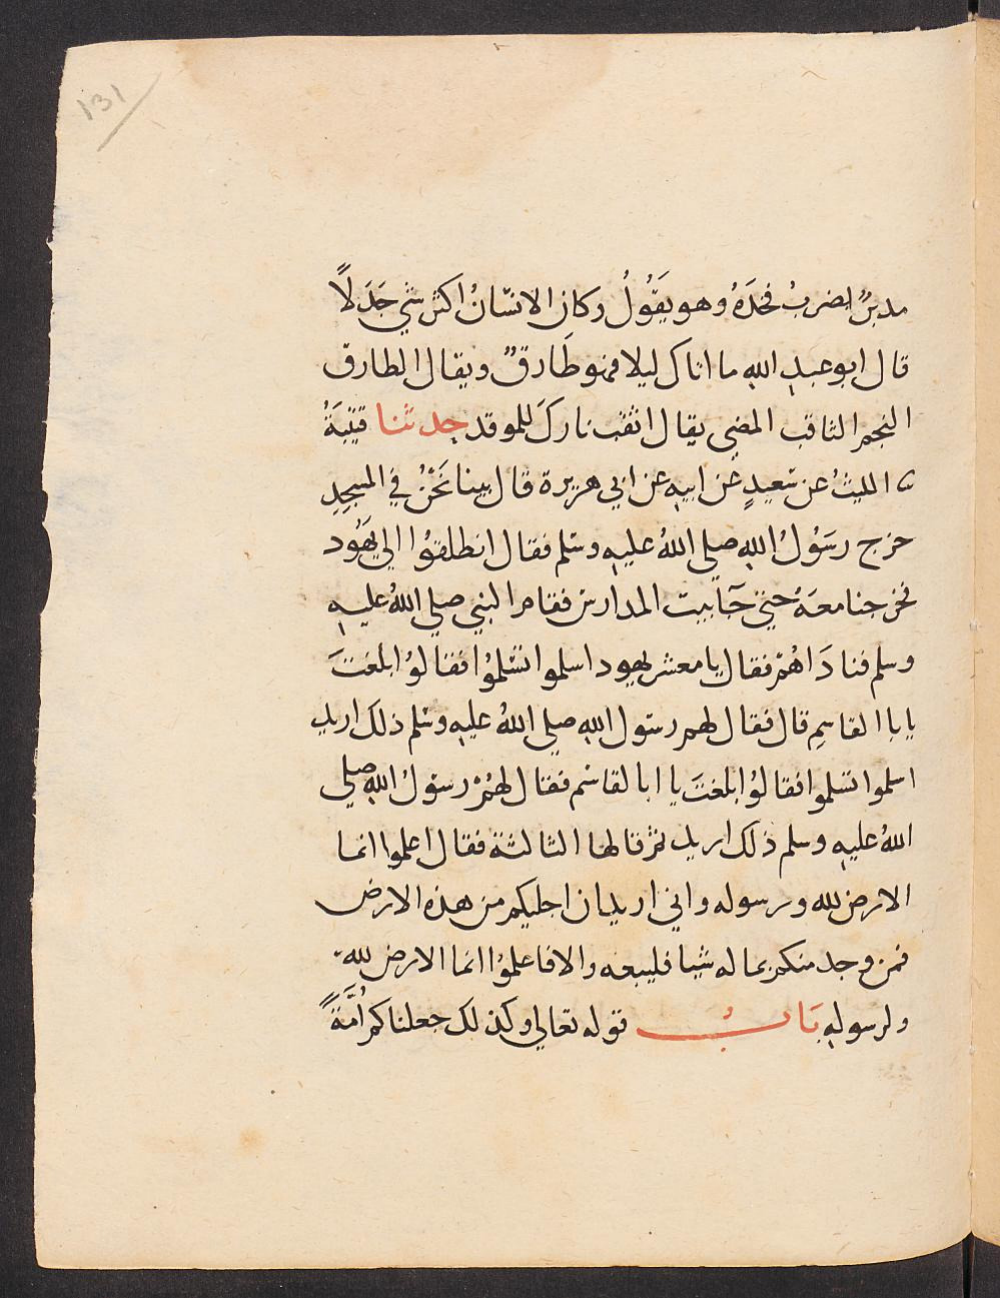 131
مدبرٌ يضربُ فخذَهُ وهو يقُولُ وكان الانسانُ اكثر شي جَدَلاً
قال ابو عبدِ اللهِ ما اتاك ليلا فهو طَارقٌ ويقال الطارق
النجم الثاقب المضي يقال اثقب نارك للموقد حدثنا قتيبَةُ
نا الليثُ عن سَعيدٍ عن ابيهِ عن ابي هريرة قال بينا نَحْنُ في المسجِدِ
خرج رسُوْلُ اللهِ صلي اللهُ عليهِ وسلم فقال انطلقوُا الي يهَود
فخرجنا معَهُ حتي جآ بيت المدارس فقام النبي صلي اللهُ عليهِ
وسلم فنادَاهُمْ فقال يا معشر يهود اسلموا تسْلموُا فقالوُا بلغتَ
يا با القاسِمِ قال فقال لهم رسول اللهِ صلي اللهُ عليهِ وسلم ذلك اريد
اسلموا تسلموا فقالوُا بلغتَ يا ابا القاسم فقال لهُمْ رسوْلُ اللهِ صلي
اللهُ عليهِ وسلم ذلك اريد ثم قالها الثالثة فقال اعلموا انما
الارض لله ورسوله واني اريد ان اجليكم من هذه الارض
فمن وجد منكم بماله شيا فليبعه والا فاعلموُا انما الارض لله
ولرسولهِ بَابُ قوله تعالي وكذلك جعلناكم اُمَّةً